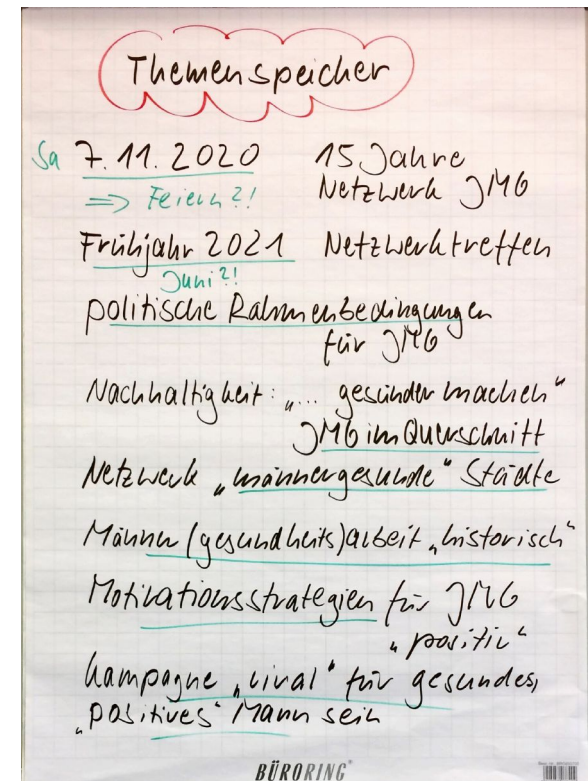 Themenspeicher
Sa 7.11.2020 15 Jahre
⇒ Feiern?! Netzwerk JMG
Frühjahr 2021 Netzwerktreffen
Juni?!
politische Rahmenbedingungen
für JMG
Nachhaltigkeit: „... gesünder machen“
JMG im Querschnitt
Netzwerk „männergesunde“ Städte
Männer(gesundheits)arbeit „historisch“
Motivationsstrategien für JMG
„positiv“
Kampagne „viral“ für gesundes,
„positives“ Mann sein
BÜRORING